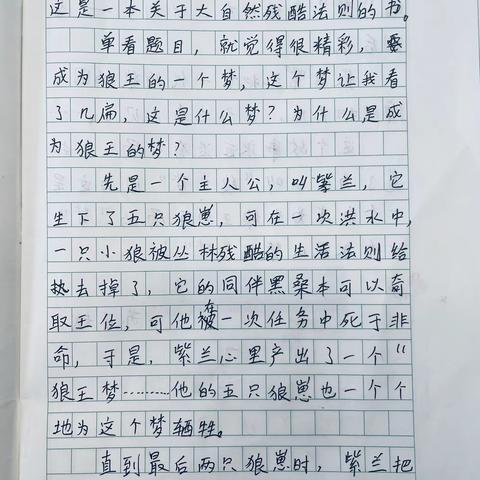 这是一本关于大自然残酷法则的书。
单看题目，就觉得很精彩，
成为狼王的一个梦，这个梦让我看
了几扁，这是什么梦？为什么是成
为狼王的梦？
先是一个主人公，叫紫兰，它
生下了五只狼崽，可在一次洪水中，
一只小狼被丛林残酷的生活法则给
热去掉了，它的同伴黑桑本可以奇
取王位，可他在一次任务中死于非
命，于是，紫兰心里产出了一个“
狼王梦………他的五只狼崽也一个个
地为这个梦牺牲。
直到最后两只狼崽时，紫兰把